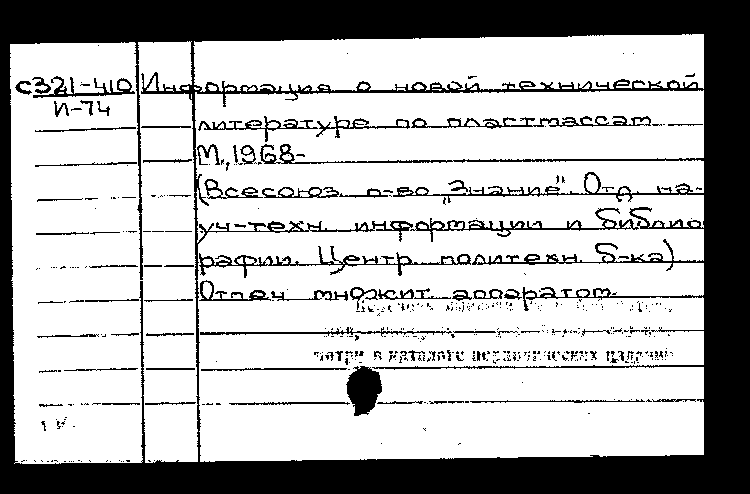 с321-410 Информация о новой технической
И-74
литературе по пластмассам
М., 1968-
(Всесоюз. о-во "Знание". Отд. на-
уч-техн. информации и библио
рафии. Центр. политехн. б-ка)
Отпеч множит. аппаратом.
мотри в каталоге периодических изданий